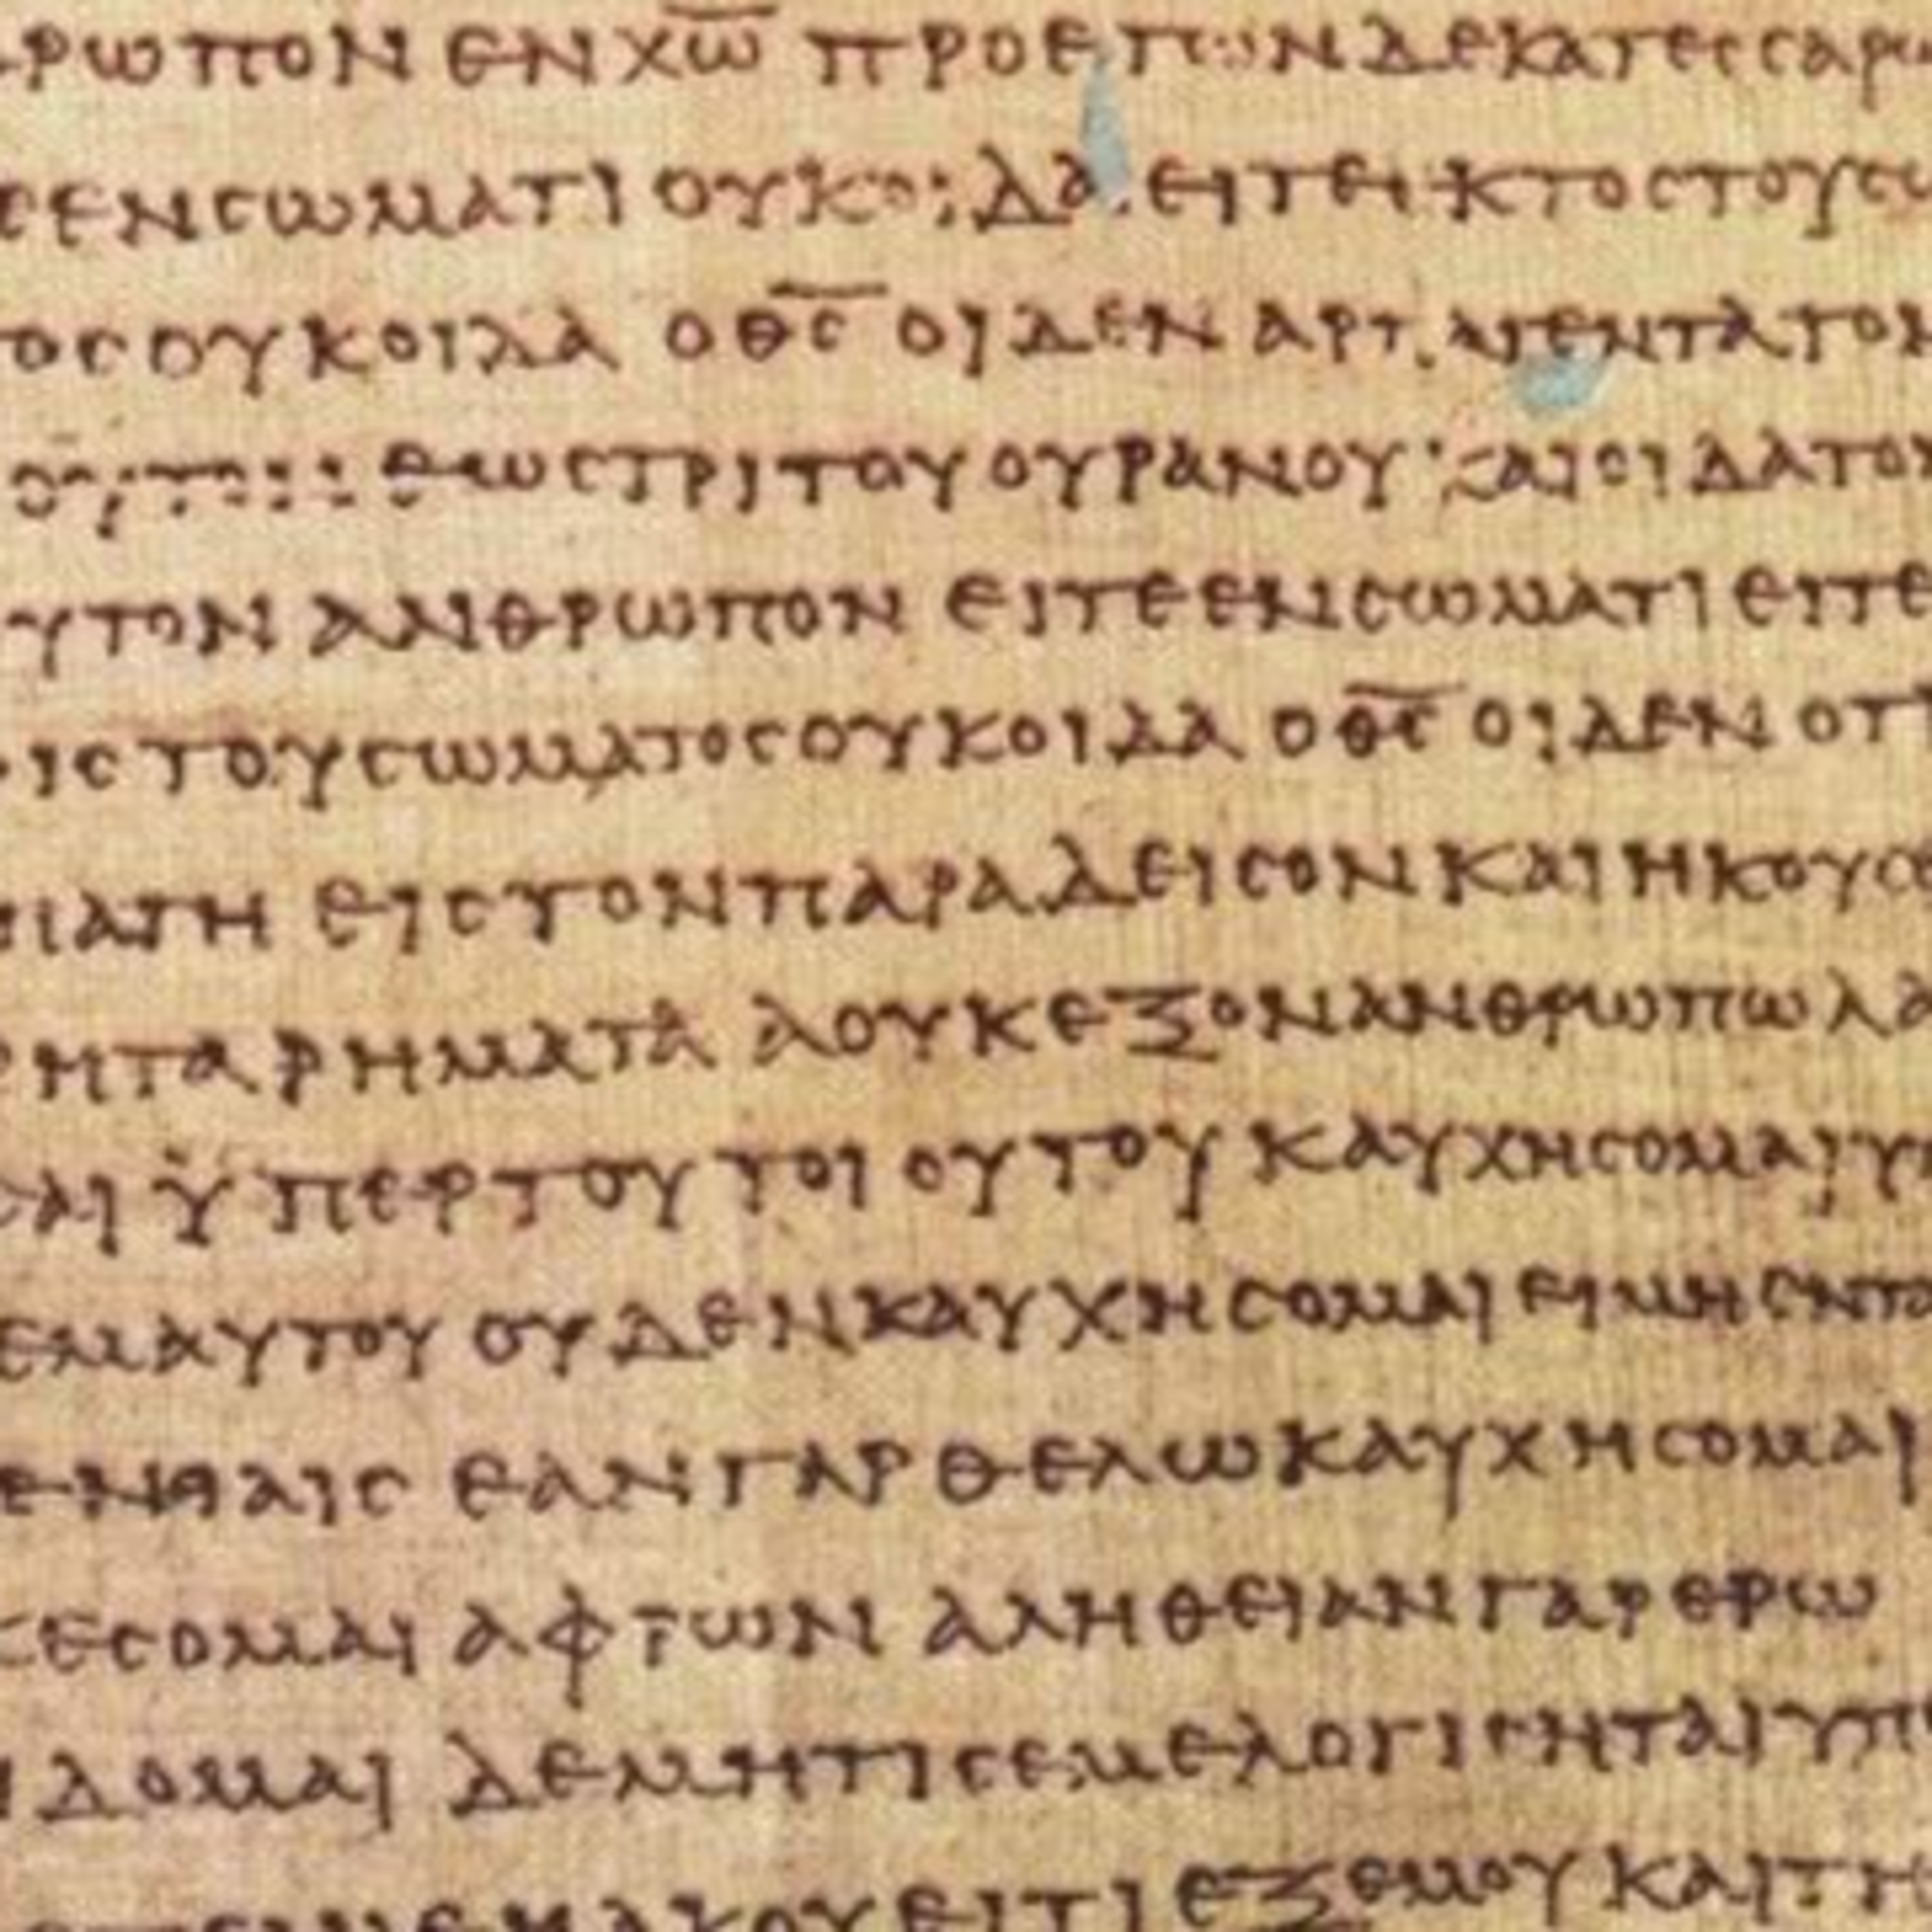 ΡΩΠΟΝ ΕΝ ΧΩ̅ ΠΡΟ ΕΤΩΝ ΔΕΚΑΤΕССΑΡΩ
ΕΝ СΩΜΑΤΙ ΟΥΚ ΟΙΔΑ ΕΙΤΕ ΕΚΤΟС ΤΟΥ СΩ
ΤΟС ΟΥΚ ΟΙΔΑ Ο Θ̅С̅ ΟΙΔΕΝ ΑΡΠΑΓΕΝΤΑ ΤΟΝ
ΤΟΙΟΥΤΟΝ ΕΩС ΤΡΙΤΟΥ ΟΥΡΑΝΟΥ ΚΑΙ ΟΙΔΑ ΤΟΝ
ΥΤΟΝ ΑΝΘΡΩΠΟΝ ΕΙΤΕ ΕΝ СΩΜΑΤΙ ΕΙΤΕ
ΡΙС ΤΟΥ СΩΜΑΤΟС ΟΥΚ ΟΙΔΑ Ο Θ̅С̅ ΟΙΔΕΝ ΟΤΙ
ΠΑΓΗ ΕΙС ΤΟΝ ΠΑΡΑΔΕΙСΟΝ ΚΑΙ ΗΚΟΥСΕ
ΡΗΤΑ ΡΗΜΑΤΑ Α ΟΥΚ ΕΞΟΝ ΑΝΘΡΩΠΩ ΛΑ
СΑΙ ΫΠΕΡ ΤΟΥ ΤΟΙΟΥΤΟΥ ΚΑΥΧΗСΟΜΑΙ ΥΠ
ΕΜΑΥΤΟΥ ΟΥΔΕΝ ΚΑΥΧΗСΟΜΑΙ ΕΙ ΜΗ ΕΝ ΤΑ
ΕΝΙΑΙС ΕΑΝ ΓΑΡ ΘΕΛΩ ΚΑΥΧΗСΟΜΑΙ
ΕСΟΜΑΙ ΑΦΤΩΝ ΑΛΗΘΕΙΑΝ ΓΑΡ ΕΡΩ
ΙΔΟΜΑΙ ΔΕ ΜΗ ΤΙС ΕΜΕ ΛΟΓΙСΗΤΑΙ ΥΠ
ΒΛΕΠΕΙ ΜΕ Η ΑΚΟΥΕΙ ΤΙ ΕΞ ΕΜΟΥ ΚΑΙ ΤΗ